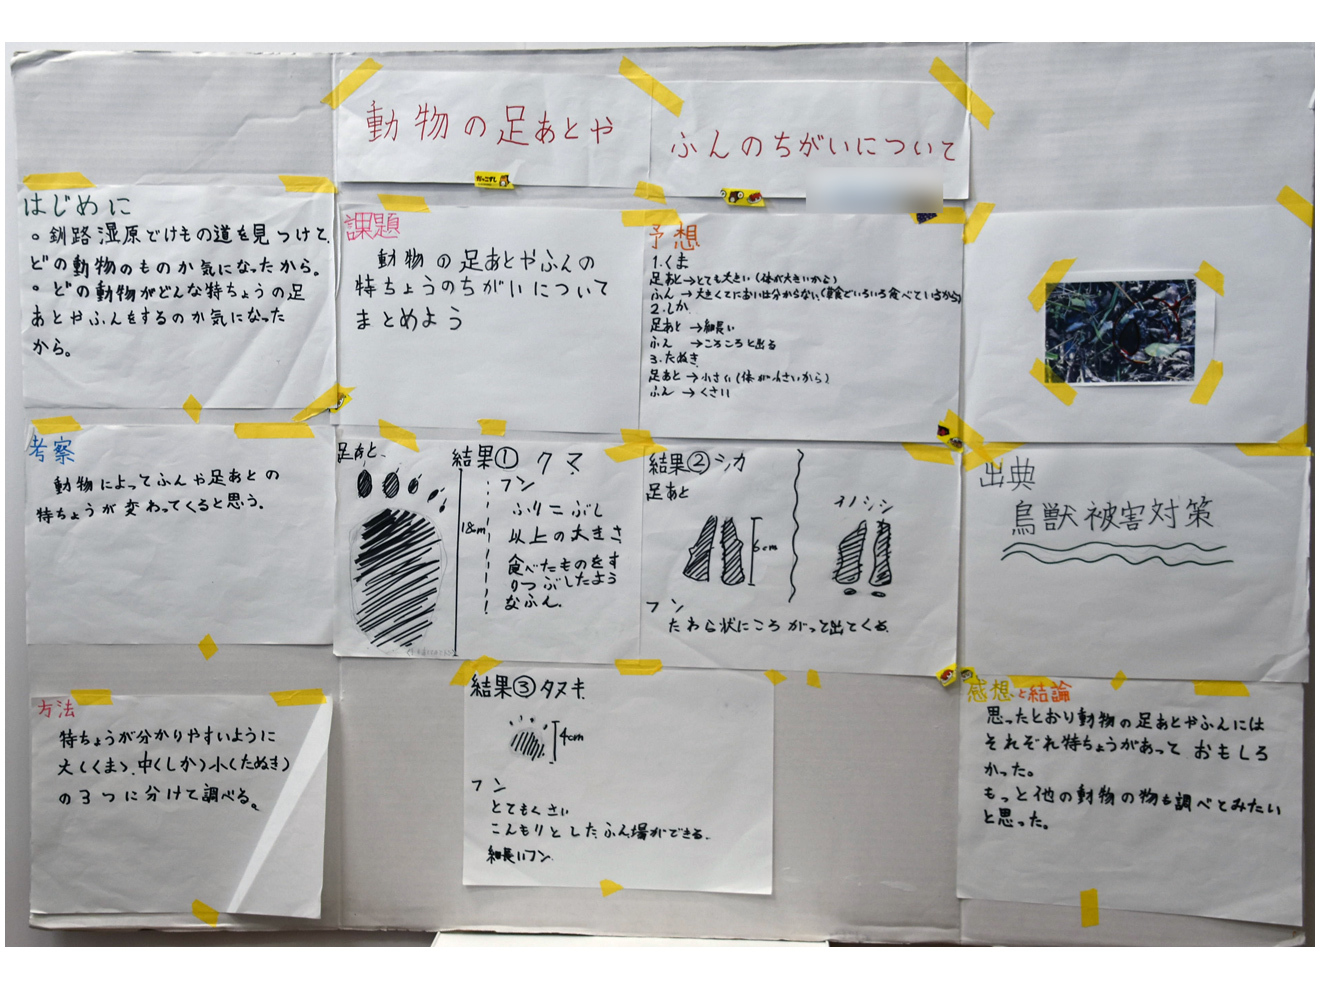 動物の足あとや
ふんのちがいについて
はじめに
。釧路湿原でけもの道を見つけて、
どの動物のものか気になったから。
。どの動物がどんな特ちょうの足
あとやふんをするのか気になった
から。
課題
動物の足あとやふんの
特ちょうのちがいについて
まとめよう
予想
1.くま
足あと→とても大きい(体が大きいから)
ふん→大きくてにおいは分からない(雑食でいろいろ食べているから)
2.しか
足あと→細長い
ふん→ころころと出る
3.たぬき
足あと→小さい(体が小さいから)
ふん→くさい
考察
動物によってふんや足あとの
特ちょうが変わってくると思う。
足あと
結果①クマ
18cm
フン
ふりこぶし
以上の大きさ
食べたものをす
りつぶしたよう
なふん。
結果②シカ
足あと
6cm
イノシシ
フン
たわら状にころがって出てくる。
出典
鳥獣被害対策
方法
特ちょうが分かりやすいように
大(くま)、中(しか)小(たぬき)
の3つに分けて調べる。
結果③タヌキ
4cm
フン
とてもくさい
こんもりとしたふん場ができる。
細長いフン
感想と結論
思ったとおり動物の足あとやふんには
それぞれ特ちょうがあっておもしろ
かった。
もっと他の動物の物も調べてみたい
と思った。